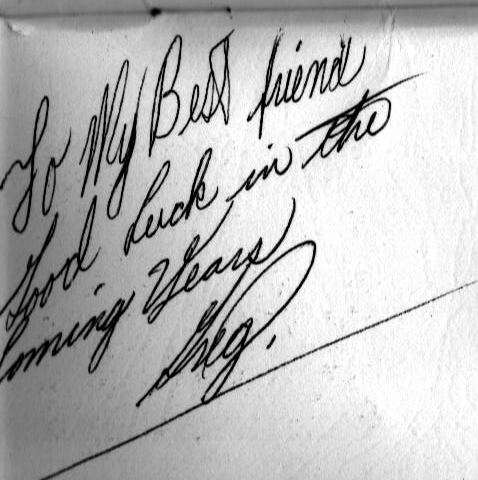 To My Best friend
Good Luck in the
Coming Years
Greg.